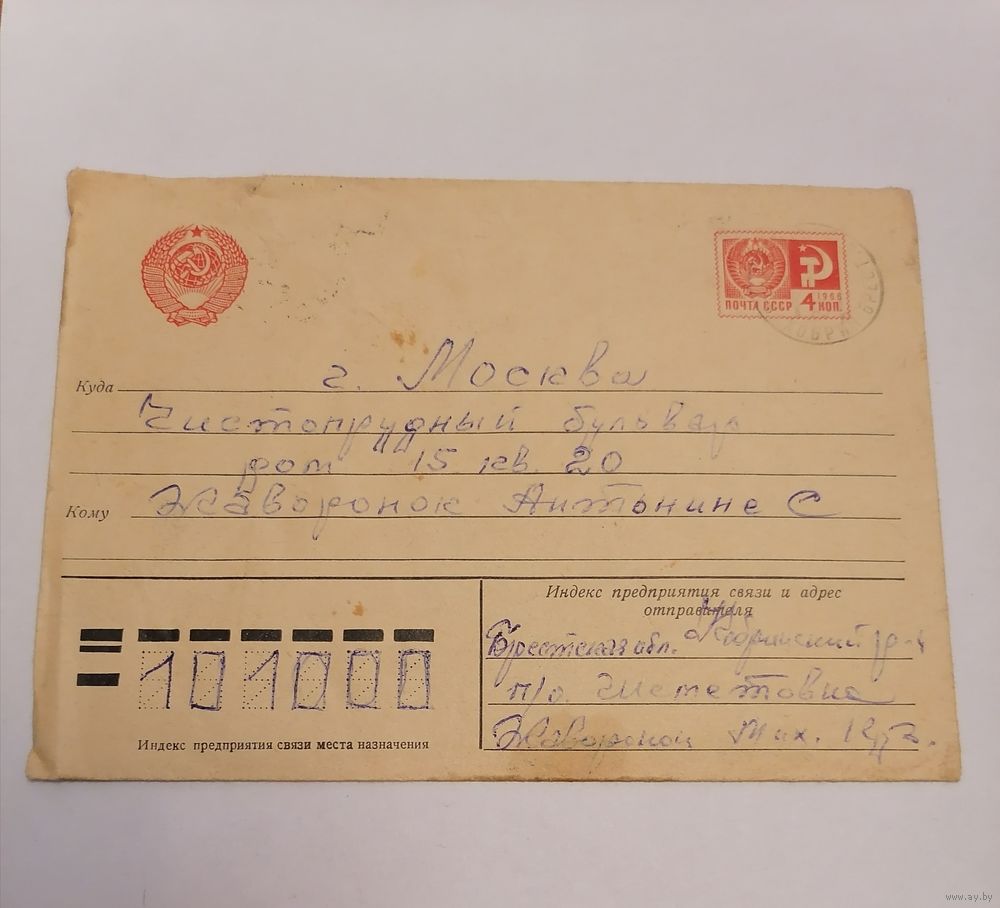 ПОЧТА СССР 4 1966 КОП.
КОБРИН БРЕСТ
Куда г. Москва
Чистопрудный бульвар
дом 15 кв. 20
Кому Жаворонок Антонине С
Индекс предприятия связи и адрес
отправителя
Брестская обл. Кобринский р-н
101000
п/о
Индекс предприятия связи места назначения
Жаворонок Мих.
www.ay.by